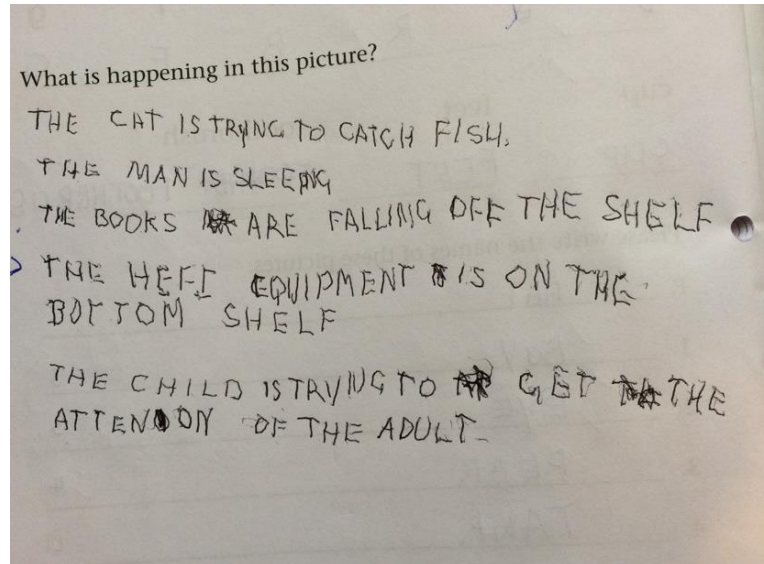 What is happening in this picture?
THE CAT IS TRYNG TO CATCH FISH.
THE MAN IS SLEEPING
THE BOOKS ARE FALLING OFF THE SHELF
THE HEFI EQUIPMENT IS ON THE
BOTTOM SHELF
THE CHILD IS TRYING TO GET THE
ATTENOON OF THE ADULT